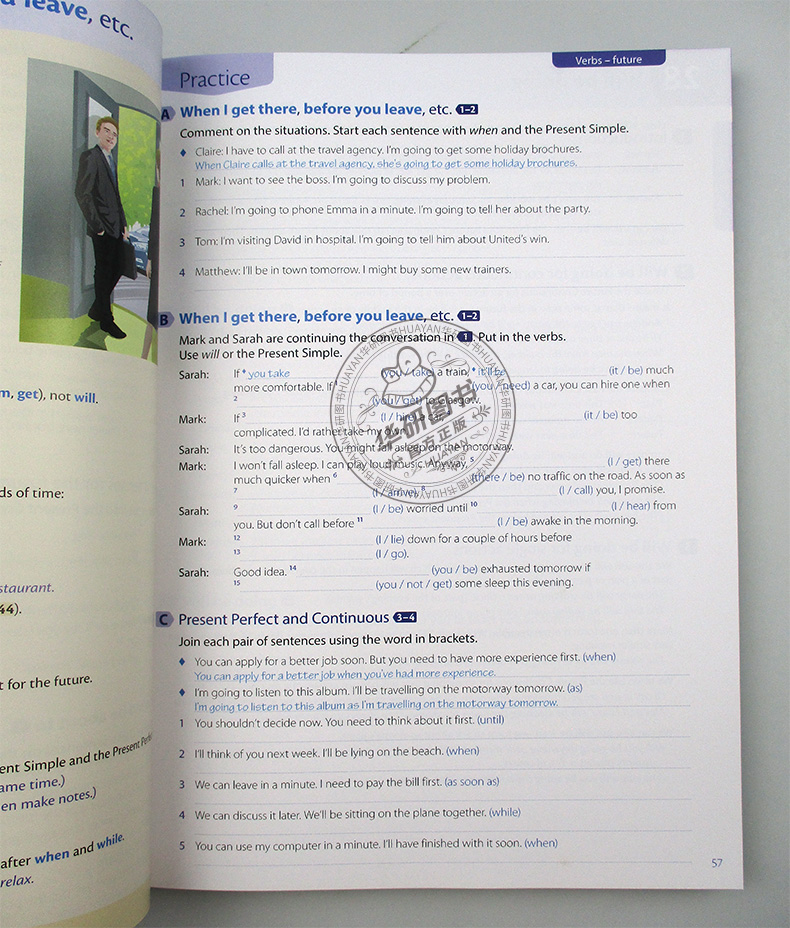 u leave, etc.
m, get), not will.
ds of time:
staurant.
44).
t for the future.
ent Simple and the Present Perf
ame time.)
en make notes.)
after when and while.
relax.
Verbs – future
Practice
A When I get there, before you leave, etc. 1–2
Comment on the situations. Start each sentence with when and the Present Simple.
♦ Claire: I have to call at the travel agency. I'm going to get some holiday brochures.
When Claire calls at the travel agency, she's going to get some holiday brochures.
1 Mark: I want to see the boss. I'm going to discuss my problem.
2 Rachel: I'm going to phone Emma in a minute. I'm going to tell her about the party.
3 Tom: I'm visiting David in hospital. I'm going to tell him about United's win.
4 Matthew: I'll be in town tomorrow. I might buy some new trainers.
B When I get there, before you leave, etc. 1–2
Mark and Sarah are continuing the conversation in 1. Put in the verbs.
Use will or the Present Simple.
Sarah: If ♦ you take (you / take) a train, ♦ it'll be (it / be) much
more comfortable. If 1 (you / need) a car, you can hire one when
2 (you / get) to Glasgow.
Mark: If 3 (I / hire) a car, (it / be) too
complicated. I'd rather take my own.
Sarah: It's too dangerous. You might fall asleep on the motorway.
Mark: I won't fall asleep. I can play loud music. Anyway, 5 (I / get) there
much quicker when 6 (there / be) no traffic on the road. As soon as
7 (I / arrive), 8 (I / call) you, I promise.
Sarah: 9 (I / be) worried until 10 (I / hear) from
you. But don't call before 11 (I / be) awake in the morning.
Mark: 12 (I / lie) down for a couple of hours before
13 (I / go).
Sarah: Good idea. 14 (you / be) exhausted tomorrow if
15 (you / not / get) some sleep this evening.
C Present Perfect and Continuous 3–4
Join each pair of sentences using the word in brackets.
♦ You can apply for a better job soon. But you need to have more experience first. (when)
You can apply for a better job when you've had more experience.
♦ I'm going to listen to this album. I'll be travelling on the motorway tomorrow. (as)
I'm going to listen to this album as I'm travelling on the motorway tomorrow.
1 You shouldn't decide now. You need to think about it first. (until)
2 I'll think of you next week. I'll be lying on the beach. (when)
3 We can leave in a minute. I need to pay the bill first. (as soon as)
4 We can discuss it later. We'll be sitting on the plane together. (while)
5 You can use my computer in a minute. I'll have finished with it soon. (when)
57
华研图书
官方正版
HUAYAN